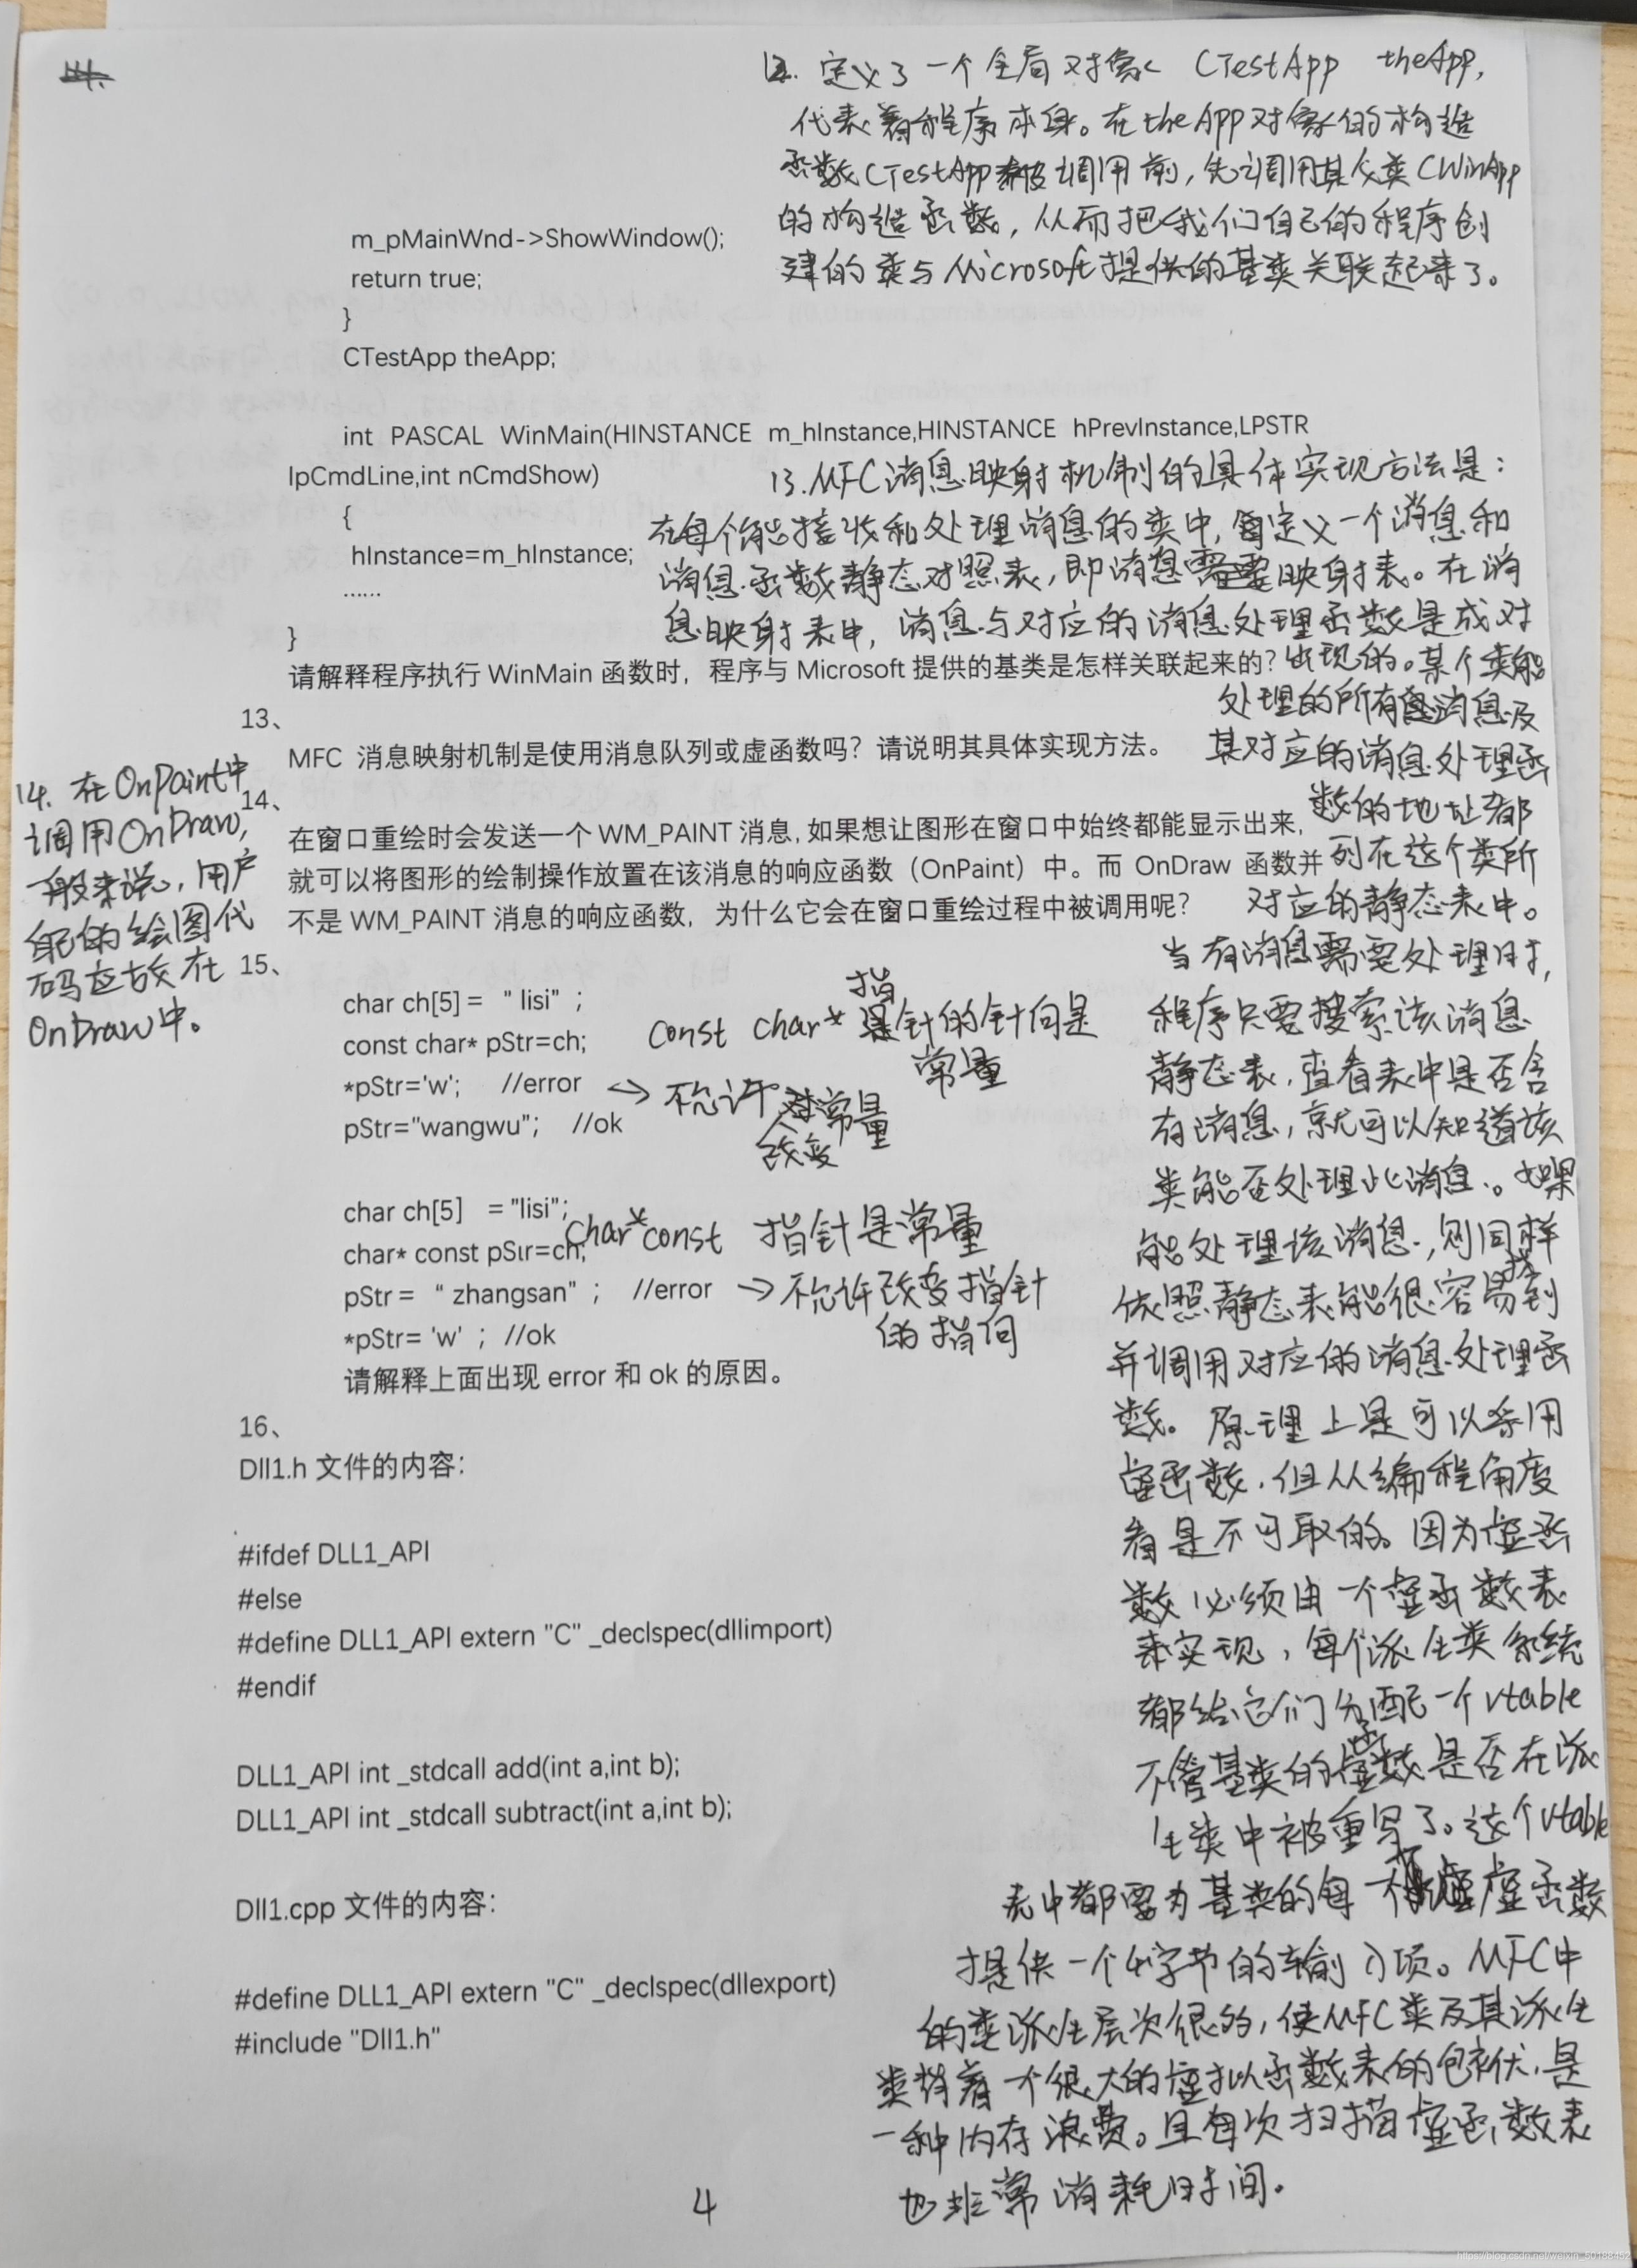 12. 定义了一个全局对象 CTestApp theApp,
代表着程序本身。在theApp对象的构造
函数CTestApp被调用前,先调用其父类CWinApp
的构造函数,从而把我们自己的程序创
建的类与Microsoft提供的基类关联起来了。
m_pMainWnd->ShowWindow();
return true;
}
CTestApp theApp;
int PASCAL WinMain(HINSTANCE m_hInstance,HINSTANCE hPrevInstance,LPSTR
lpCmdLine,int nCmdShow)
{
hInstance=m_hInstance;
……
}
请解释程序执行 WinMain 函数时，程序与 Microsoft 提供的基类是怎样关联起来的?
13、
MFC 消息映射机制是使用消息队列或虚函数吗？请说明其具体实现方法。
13. MFC消息映射机制的具体实现方法是:
在每个能接收和处理消息的类中,定义一个消息和
消息函数静态对照表,即消息映射表。在消
息映射表中,消息与对应的消息处理函数是成对
出现的。某个类能
处理的所有消息及
其对应的消息处理函
数的地址都
列在这个类所
对应的静态表中。
当有消息需要处理时,
程序只要搜索该消息
静态表,查看表中是否含
有消息,就可以知道该
类能否处理此消息。如果
能处理该消息,则同样
依照静态表能很容易找到
并调用对应的消息处理函
数。原理上是可以采用
虚函数,但从编程角度
看是不可取的。因为虚函
数必须由一个虚函数表
来实现,每个派生类系统
都给它们分配一个vtable
不管基类的虚函数是否在派
生类中被重写了。这个vtable
表中都要为基类的每一个虚函数
提供一个4字节的输入项。MFC中
的类派生层次很多,使MFC类及其派生
类背着一个很大的虚拟函数表的包袱,是
一种内存浪费。且每次扫描虚函数表
也非常消耗时间。
14、
在窗口重绘时会发送一个 WM_PAINT 消息, 如果想让图形在窗口中始终都能显示出来,
就可以将图形的绘制操作放置在该消息的响应函数（OnPaint）中。而 OnDraw 函数并
不是 WM_PAINT 消息的响应函数，为什么它会在窗口重绘过程中被调用呢?
14. 在OnPaint中
调用OnDraw,
一般来说,用户
自己的绘图代
码应放在
OnDraw中。
15、
char ch[5] = “ lisi” ;
const char* pStr=ch;
*pStr='w'; //error
pStr="wangwu"; //ok
const char* 指针的针向是
常量
→ 不允许对常量
改变
char ch[5] = "lisi";
char* const pStr=ch;
pStr = “ zhangsan” ; //error
*pStr= 'w' ; //ok
请解释上面出现 error 和 ok 的原因。
char* const 指针是常量
→ 不允许改变指针
的指向
16、
Dll1.h 文件的内容：
#ifdef DLL1_API
#else
#define DLL1_API extern "C" _declspec(dllimport)
#endif
DLL1_API int _stdcall add(int a,int b);
DLL1_API int _stdcall subtract(int a,int b);
Dll1.cpp 文件的内容：
#define DLL1_API extern "C" _declspec(dllexport)
#include "Dll1.h"
4